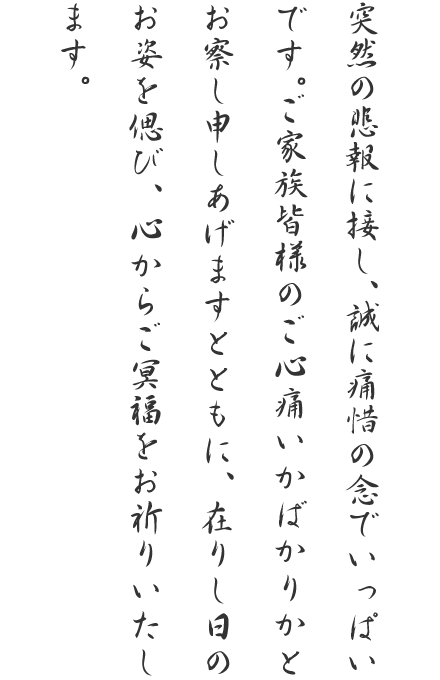 突然の悲報に接し、誠に痛惜の念でいっぱい
です。ご家族皆様のご心痛いかばかりかと
お察し申しあげますとともに、在りし日の
お姿を偲び、心からご冥福をお祈りいたし
ます。